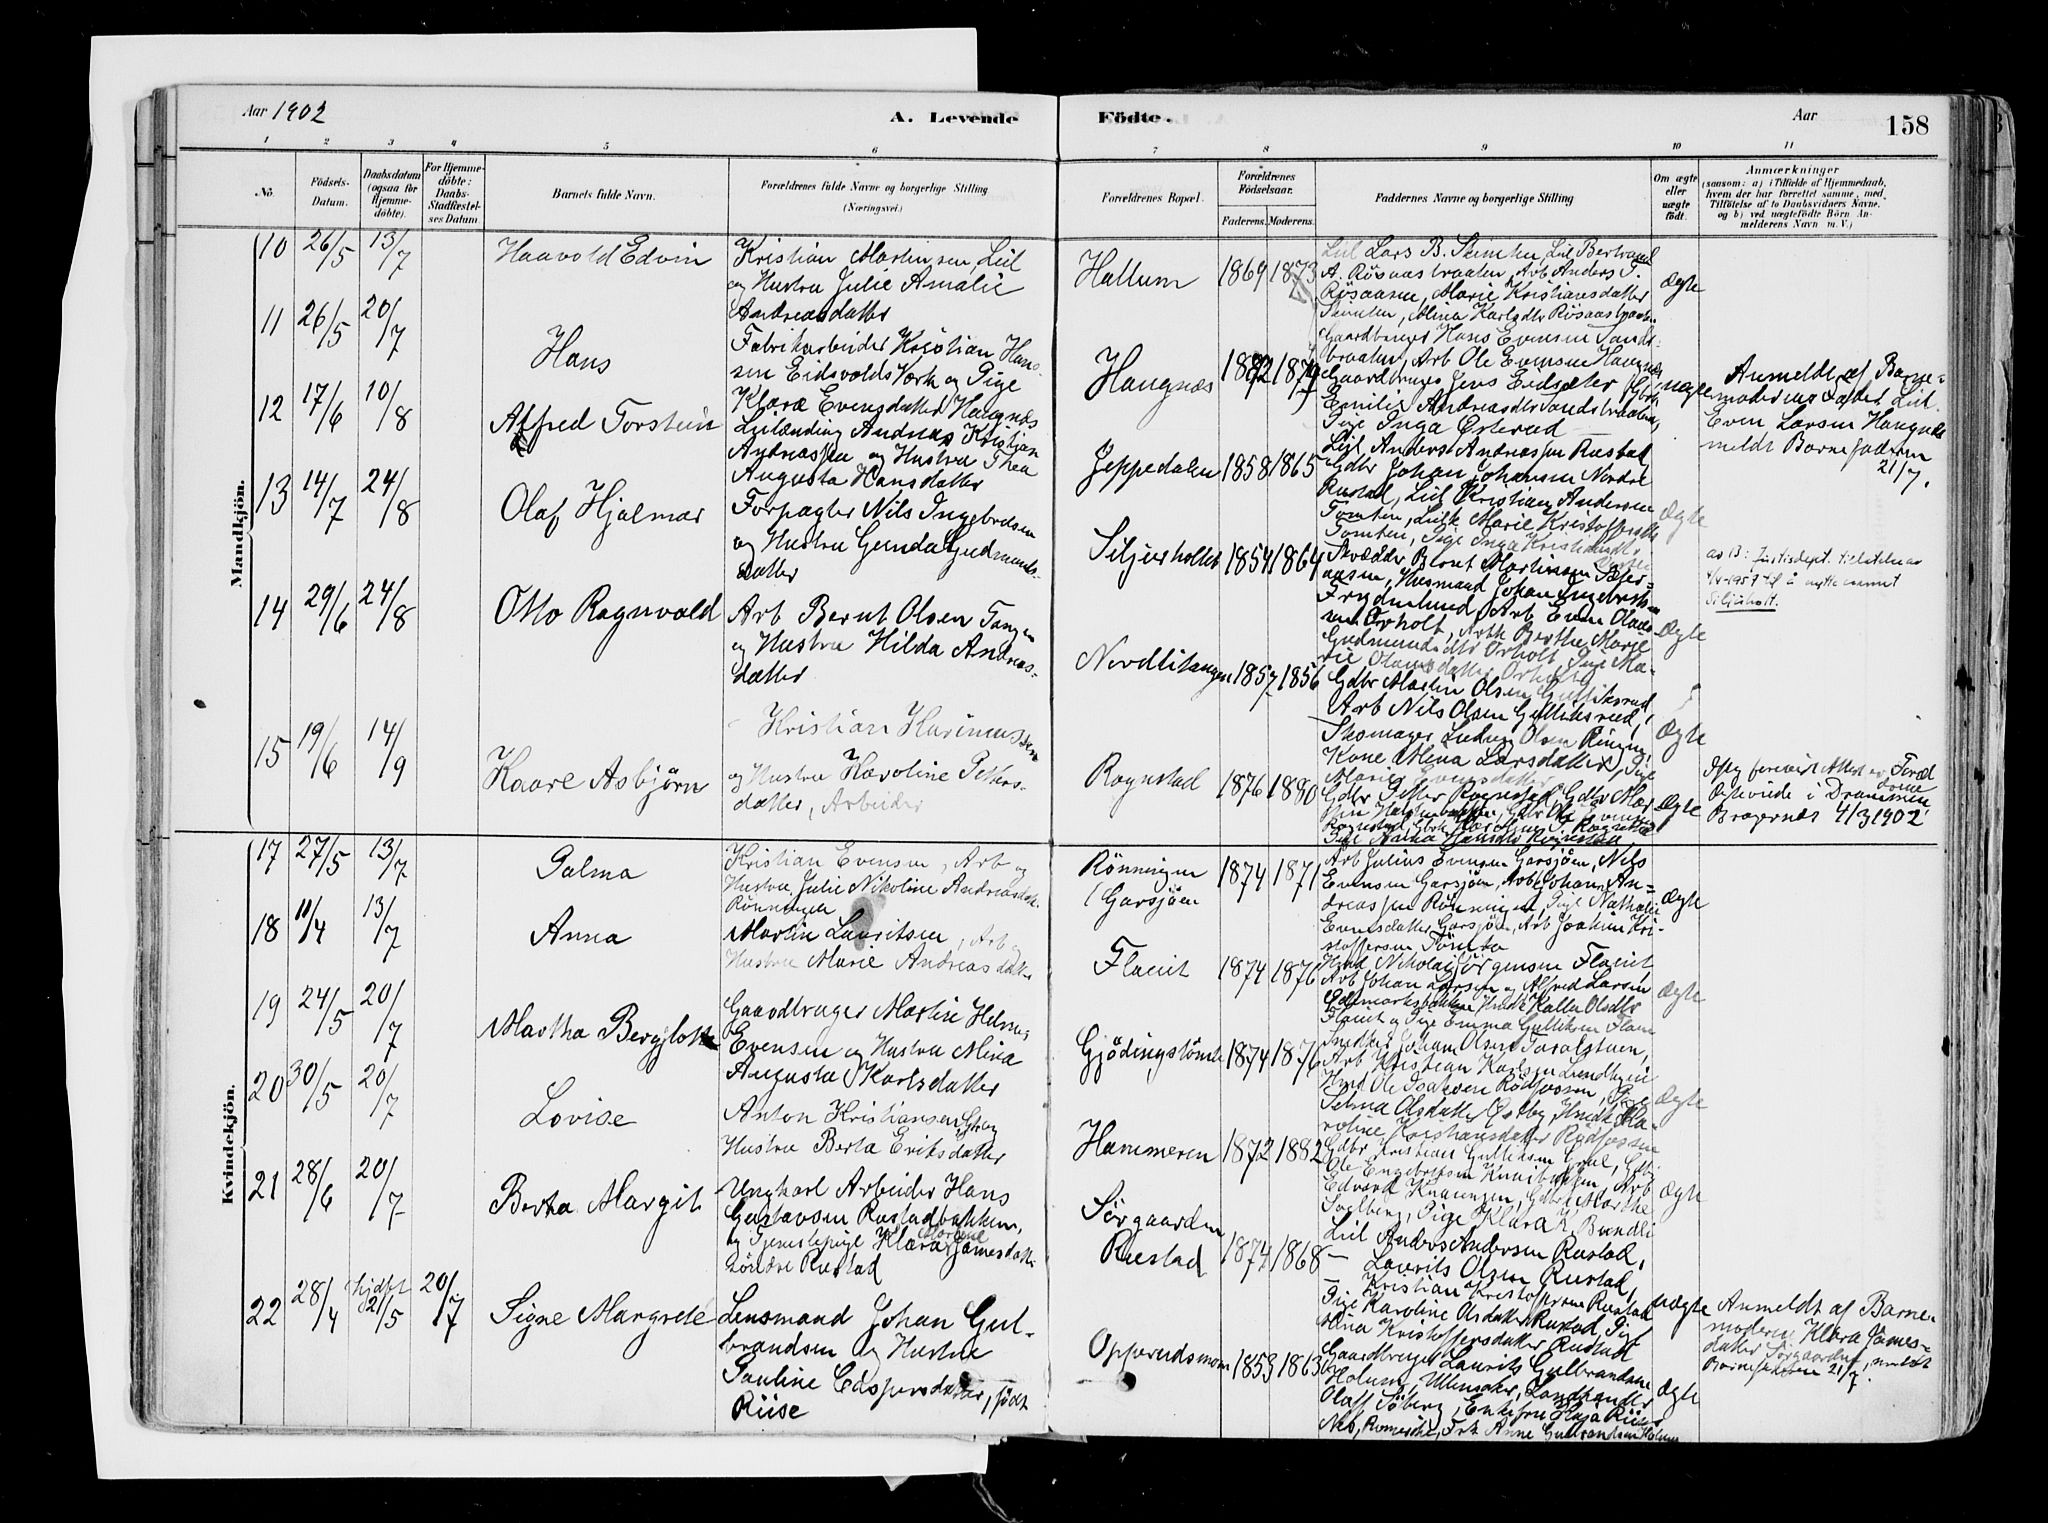 Aar 1902
A. Levende
Födte.
Aar
158
1 2 3 4 5 6 7 8 9 10 11
No.
Födsels-
Datum.
Daabsdatum
(ogsaa for
Hjemme-
döbte).
For Hjemme-
döbte:
Daabs-
Stadfæstel-
ses Datum.
Barnets fulde Navn.
Forældrenes fulde Navne og borgerlige Stilling
(Næringsvei.)
Forældrenes Bopæl.
Forældrenes
Födselsaar.
Faderens. Moderens.
Faddernes Navne og borgerlige Stilling
Om ægte
eller
uægte
födt.
Anmærkninger
(saasom: a) i Tilfælde af Hjemmedaab,
hvem der har forrettet samme, med
Tilföielse af to Daabsvidners Navne,
og b) ved uægtefödte Börn An-
melderens Navn m. V.)
Mandkjön.
10 26/5 13/7
Haavold Edvin
Kristian Martinsen, Leil
og Hustru Julie Amalie
Andreasdatter
Hallum
1869 1873
Leil Lars B. Skimten, Leil Bertrand
A. Rösaasbraaten, Arb Anders T.
Rösaasen, Marie Kristiansdatter
Skimten, Mina Karlsdtr Rösaasbraaten
Ægte
11 26/5 20/7
Hans
Fabrikarbeider Kristian Han-
sen Eidsvolds Værk og Pige
Klara Evensdatter Haugnæs
Haugnæs
1882 1879
Gaardbruger Hans Evensen Sands-
braaten, Arb Ole Evensen Haugnæs,
Gaardbruger Jens Eidsæter, Gbrk
Emilie Andreasdtr Sandsbraaten,
Pige Inga Esterud
uægte
Anmeldt af Barne-
moderens Fader Leil.
Even Larsen Haugnæs
meldt Barnefaderen
21/7.
12 17/6 10/8
Alfred Torstein
Leilænding Andreas Kristian
Andreassen og Hustru Thea
Augusta Hansdatter
Jeppedalen
1858 1865
Leil Anders Andreassen Rustad,
Gdbr Johan Johansen Nordre
Rustad, Leil Kristian Andersen
Tomten, Leilk Marie Kristoffersdtr
Tomten, Pige Inga Kristiansdtr
Ægte
13 14/7 24/8
Olaf Hjalmar
Forpagter Nils Ingebretsen
og Hustru Gunda Gudmunds-
datter
Siljuholtet
1854 1864
Bernt Martinsen Sæter-
aasen, Husmand Johan Ingebretsen
Frydenlund, Arb Even Olaus-
sen Orholt, Arbk Berthe Marie
Gudmundsdtr Orholt, Pige Ma-
rie Olausdatter Orholt
Ægte
ad 13: Justisdept. tillatelse av
1957 til å nytte navnet
Siljuholt.
14 29/6 24/8
Otto Ragnvald
Arb Bernt Olsen Tangen
og Hustru Hilda Andreas-
datter
Nordlitangen
1857 1856
Gdbr Martin Olsen Gulliksrud
Arb Nils Olsen Gulliksrud,
Skomager Ludvig Olsen Ringen,
Kone Mina Larsdatter, Pige
Marie Evensdatter
Ægte
15 19/6 14/9
Kaare Asbjörn
Kristian Marinussen
og Hustru Karoline Petters-
datter, Arbeider
Rognstad
1876 1880
Gdbr Petter Rognstad, Gdbr Mar-
Ægte
Ifölg forevist Attest er Foræld
rene
Ægteviede i Drammen,
Bragernes 4/3 1902
Kvindekjön.
17 27/5 13/7
Palma
Kristian Evensen, Arb og
Hustru Julie Nikoline Andreasdatt.
Rönningen
Rönningen
/Garsjöen
1874 1871
Arb Julius Evensen Garsjöen, Nils
Evensen Garsjöen, Arb Johan An-
dreassen Rönningen, Pige Nathalie
Evensdatter Garsjöen, Arb Joakim Kri-
stoffersen Tömte
Ægte
18 11/4 13/7
Anna
Martin Lauritsen, Arb og
Hustru Marie Andreasdatter
Flaeut
1874 1876
Hmd Nikolai Jörgensen Flaeut
Arb Johan Larsen og Alfred Larsen
Edemarksbakken Hmdk Kalla Olsdtr
Flaeut og Pige Emma Gulliksen Flaeut
Ægte
19 24/5 20/7
Martha Bergljot
Gaardbruger Martin Helmer
Evensen og Hustru Mina
Augusta Karlsdatter
Gjödingstömte
1874 1876
Snedker Johan Olsen
Arb Kristian Karlsen Lundbyeie
Hmd Ole Isaksen Rödfossen, Pige
Selma Olsdatter Östby, Hmdk Ka-
roline Kristiansdatter Rödfossen
Ægte
20 30/5 20/7
Lovise
Anton Kristiansen
Hustru Berta Eriksdatter
Hammeren
1872 1882
Gdbr Kristian Gulliksen
Ole Engebretsen Arb
Edvard
Pige Klara K. Bundli
Ægte
21 28/6 20/7
Berta Margit
Ungkarl Arbeider Hans
Gustavsen Rustadbakken,
og Tjenestepige Klara Jamesdatt.
Söndre Rustad
Sörgaarden
Rustad
1874 1868
Leil Anders Andersen Rustad,
— Laurits Olsen Rustad,
— Kristian Kristoffersen Rustad
Pige Karoline Olsdatter Rustad, Pige
Mina Kristoffersdatter Rustad
uægte
Anmeldt af Barne-
moderen Klara James-
datter Sörgaarden, meldt
Barnefaderen 21/7.
22 28/4 hjdöbt 21/5 20/7
Signe Margrete
Lensmand Johan Gul-
brandsen og Hustru
Pauline Caspersdatter, födt
Riise
Opperudsmoen
1853 1863
Gaardbruger Laurits Gulbrandsen
Holum, Ullensaker, Landhandler
Olaf Söberg, Enkefru Kaja Riise
Næs, Romerike, Frk Anne Gulbrandsen Holum
Ægte